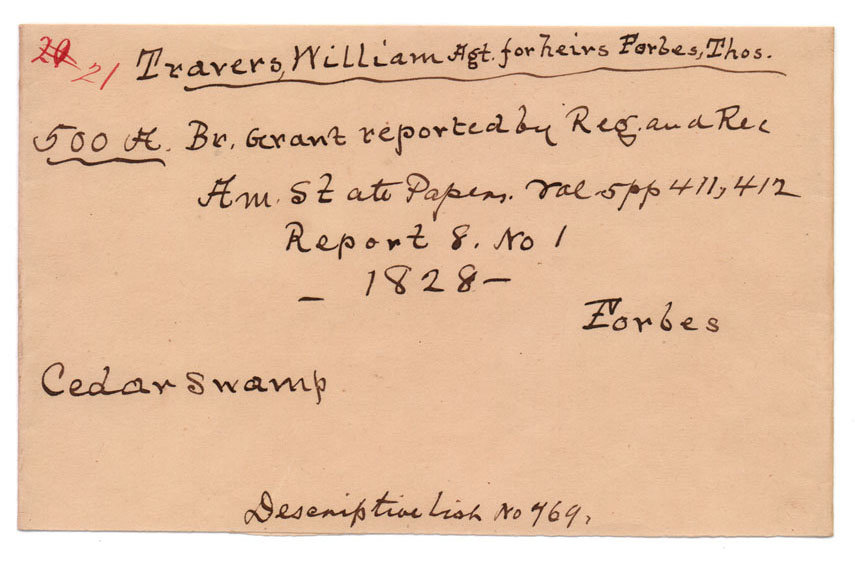 20 21 Travers, William Agt. for heirs Forbes, Thos.
500 A. Br. Grant reported by Reg. and Rec
Am. State Papers. Vol 5 pp 411, 412
Report 8. No 1
– 1828 –
Forbes
Cedar Swamp
Descriptive List No 769.